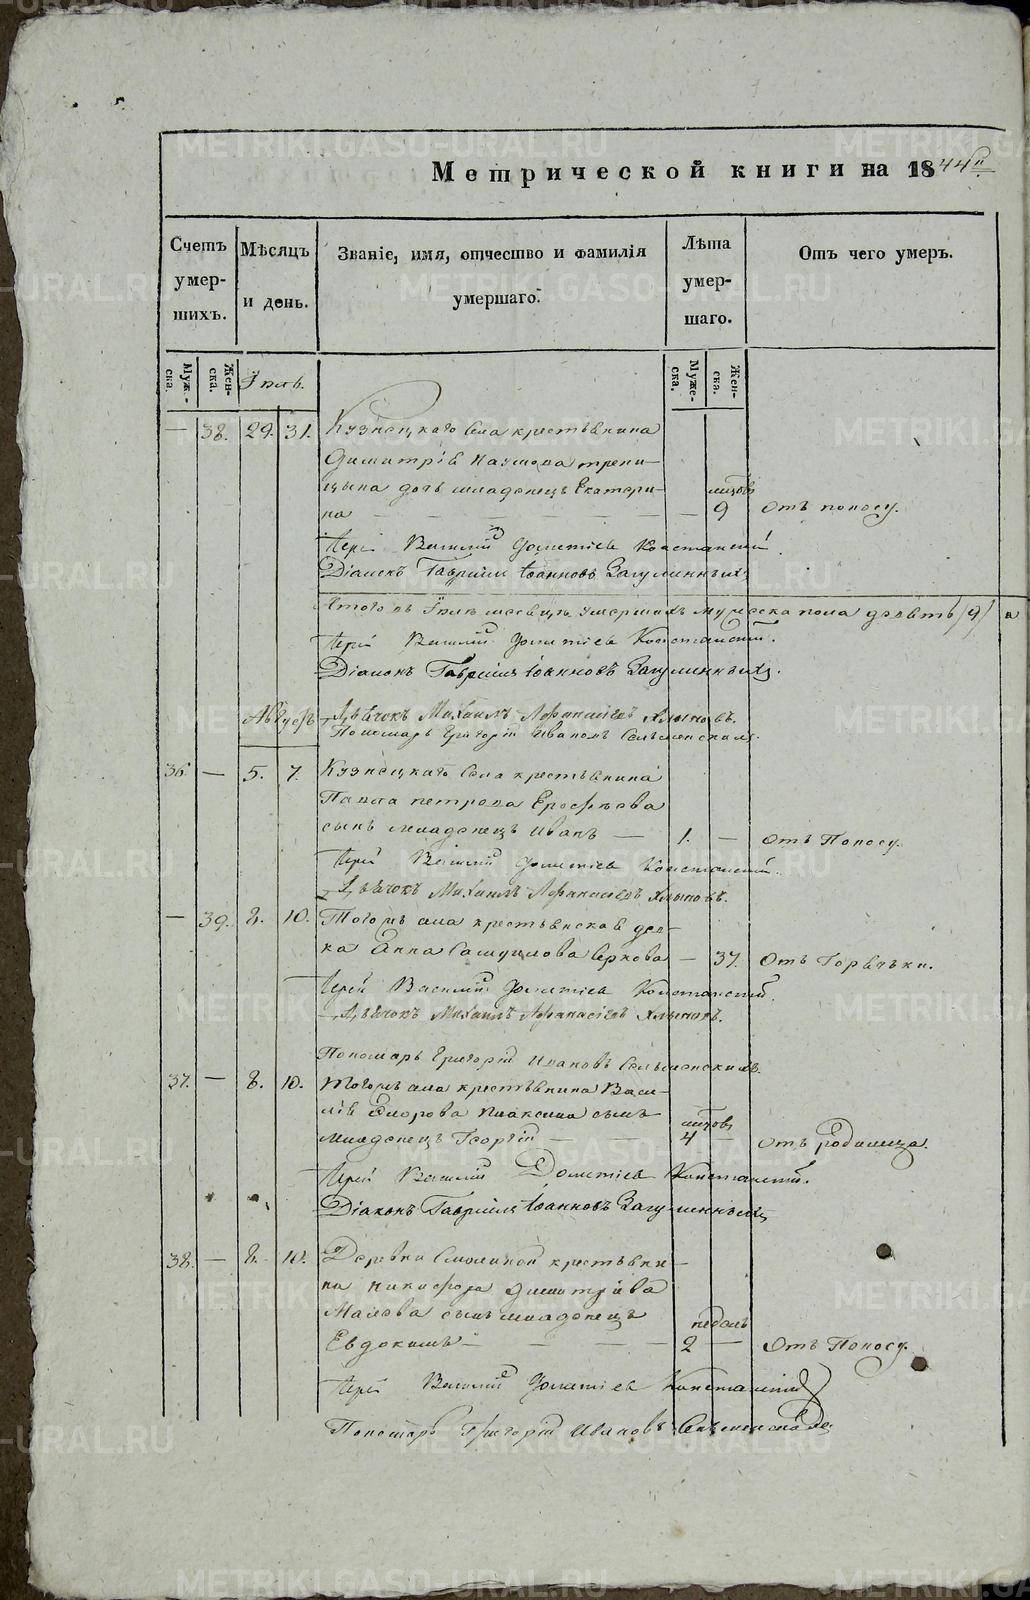 Метрической книги на 1844й
Счетъ умер-шихъ.
Мѣсяцъ и день.
Званіе, имя, отчество и фамилія умершаго.
Лѣта умер-шаго.
Отъ чего умеръ.
Муже-ска. Жен-ска. Муже-ска. Жен-ска.
— 38. 29. 31. Кузнецкаго села крестьянина
Димитрія Наумова
дочь младенецъ Екатери-
на — 9 Отъ поносу.
Іерей Василій Дометіевъ
Діаконъ Гавріилъ Іоанновъ Загуменныхъ
Итого въ месяцѣ умершихъ мужеска пола девять /9/ и
Іерей Василій Дометіевъ
Діаконъ Гавріилъ Іоанновъ Загуменныхъ.
Августъ
Дьячокъ Михаилъ Афанасіевъ Хлыновъ.
Пономарь Григорій Ивановъ
36. — 5. 7. Кузнецкаго села крестьянина
Павла Петрова Ерофѣева
сынъ младенецъ Иванъ — 1. — Отъ Поносу.
Іерей Василій Дометіевъ
Дьячокъ Михаилъ Афанасіевъ Хлыновъ.
— 39. 8. 10. Тогожъ села крестьянская дев-
ка Анна Самуилова — 37. Отъ Горячьки.
Іерей Василій Дометіевъ
Дьячокъ Михаилъ Афанасіевъ Хлыновъ.
Пономарь Григорій Ивановъ
37. — 8. 10. Тогожъ села крестьянина Васи-
лія сынъ
младенецъ Георгій — 4 — Отъ родимца.
Іерей Василій Дометіевъ
Діаконъ Гавріилъ Іоанновъ Загуменныхъ
38. — 8. 10. Деревни крестьяни-
на Никифора Димитріева
Малова сынъ младенецъ недѣль
Евдокимъ — 2 — Отъ Поносу.
Іерей Василій Дометіевъ
Пономарь Григорій Ивановъ
METRIKI.GASO-URAL.RU